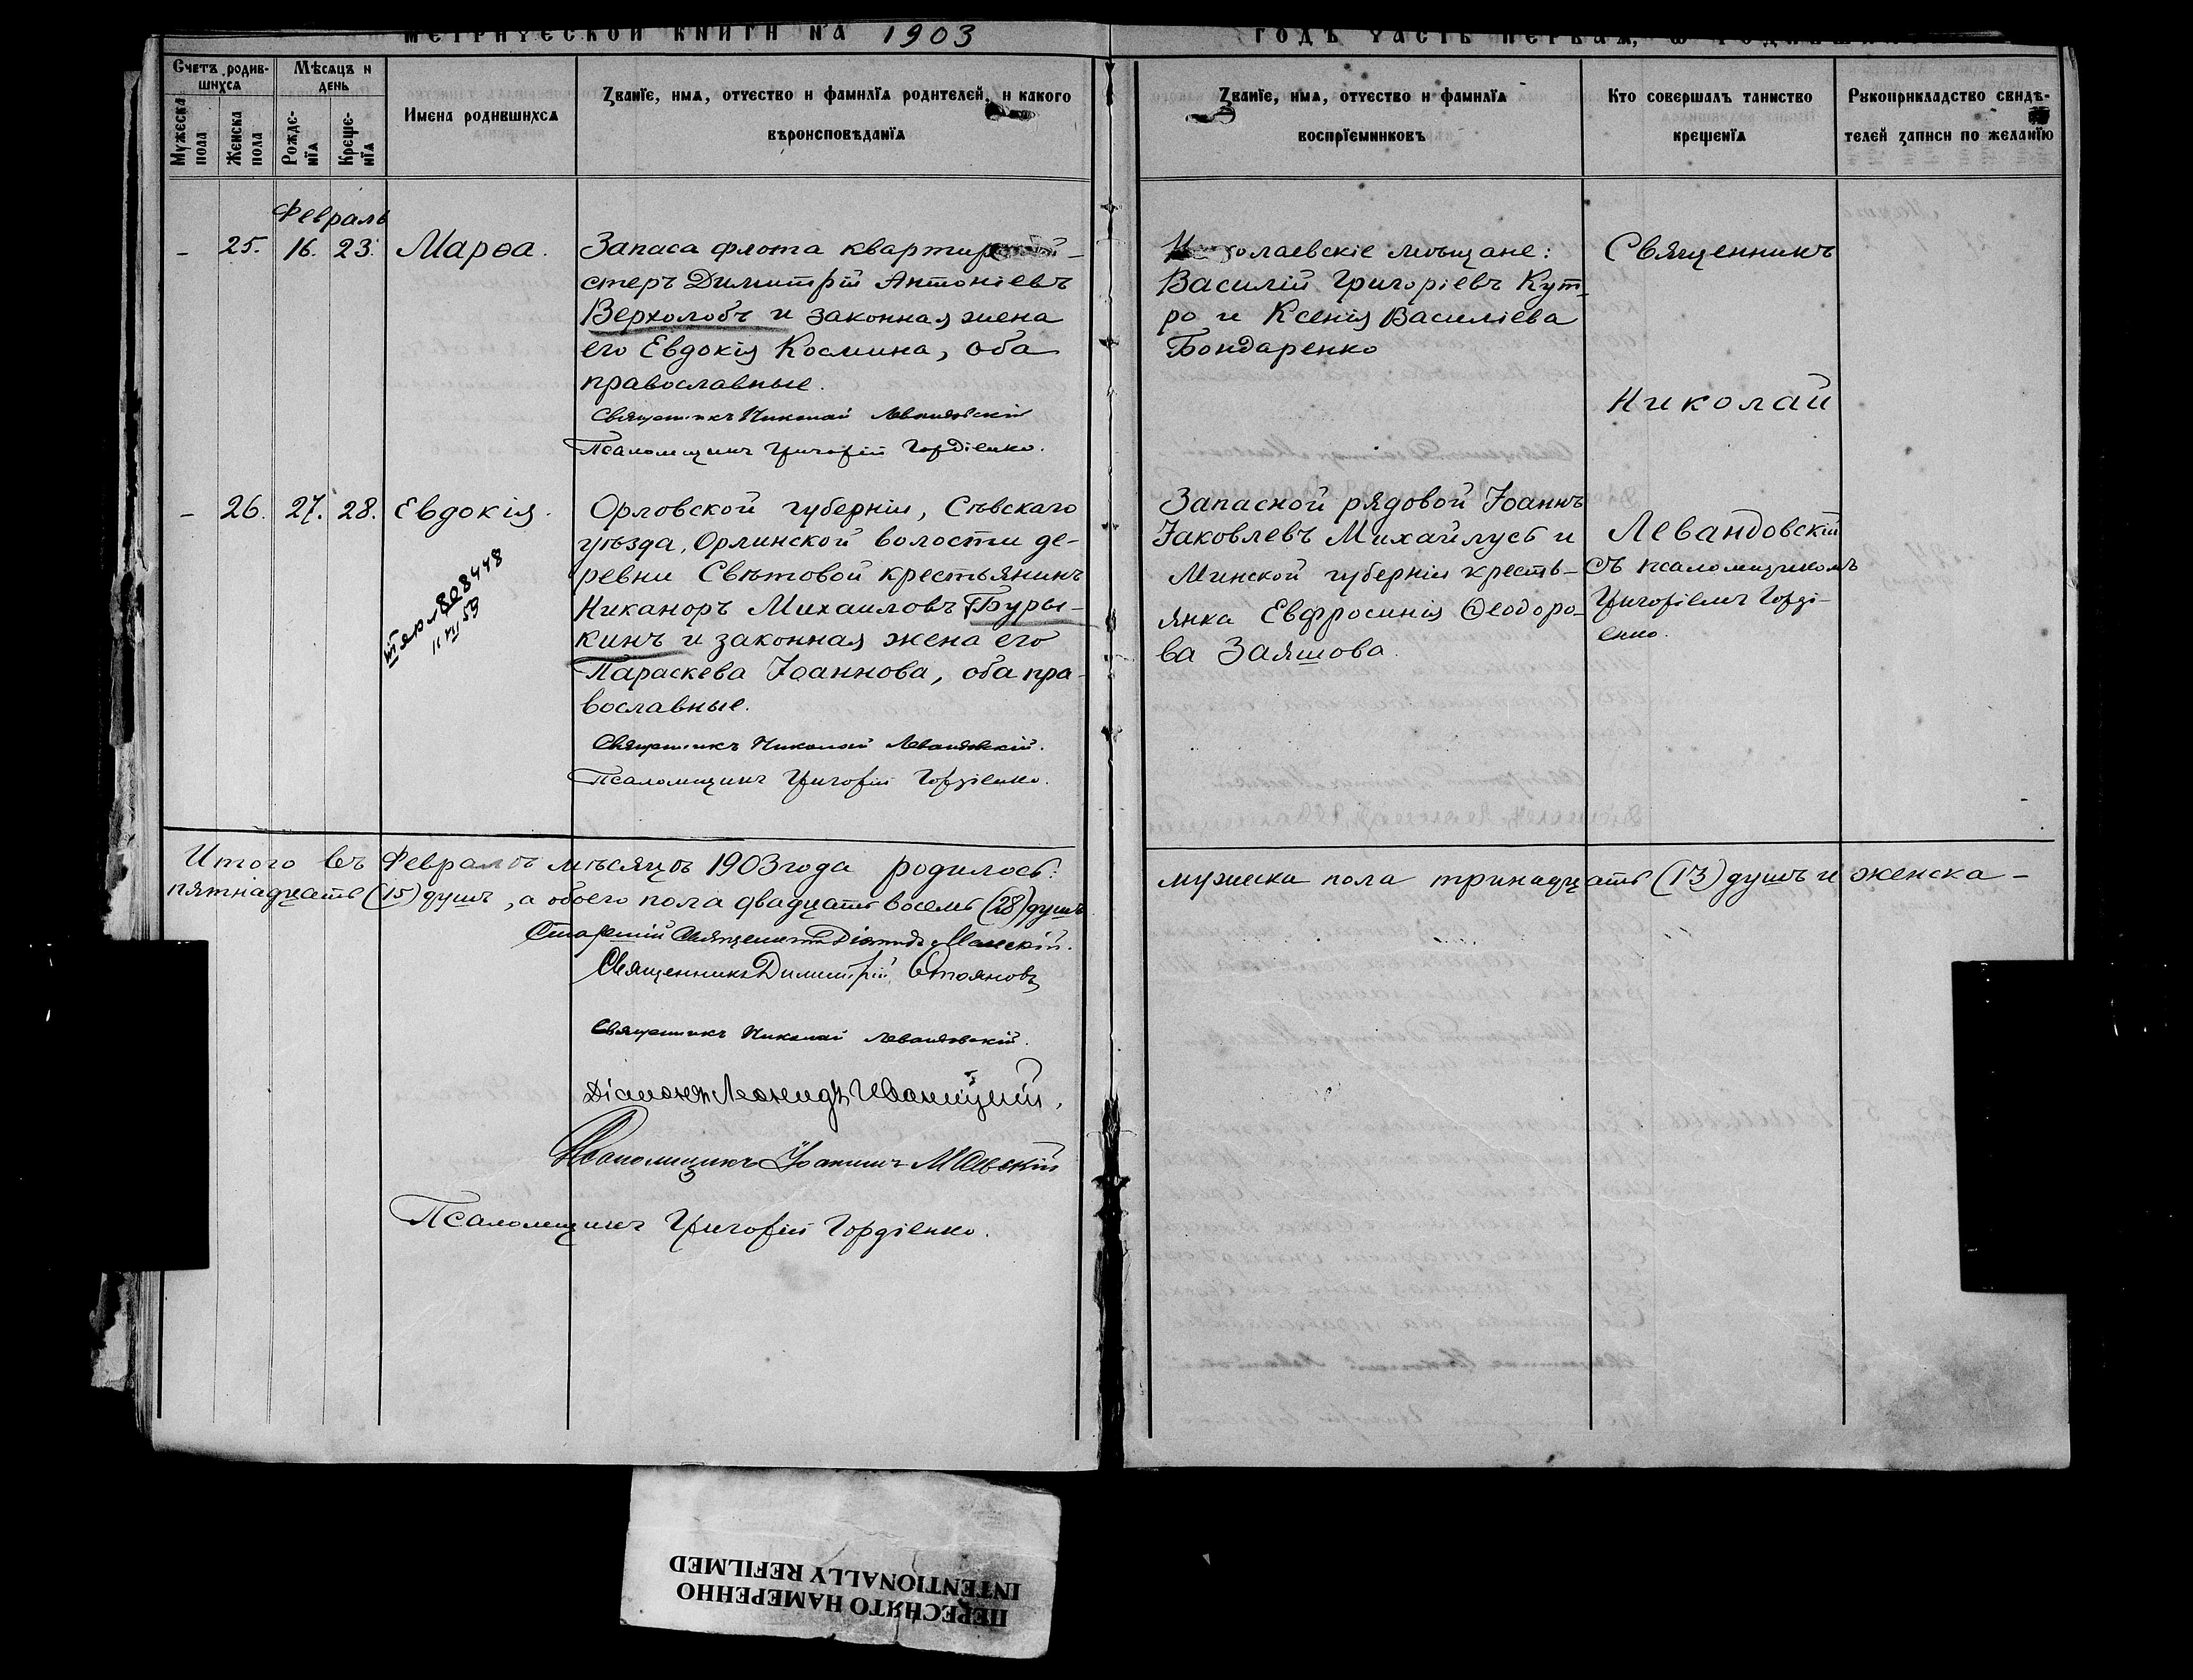 МЕТРИЧЕСКОЙ КНИГИ НА 1903
ГОДЪ ЧАСТЬ ПЕРВАЯ,
Счетъ родив-
шихся
Мѣсяцъ и
день
Мужеска
пола
Женска
пола
Рожде-
нїя
Креще-
нїя
Имена родившихся
Званїе, имя, отчество и фамилїя родителей, и какого
вѣроисповѣданїя
Званїе, имя, отчество и фамилїя
воспрїемниковъ
Кто совершалъ таинство
крещенїя
Рукоприкладство свидѣ-
телей записи по желанїю
Февраль
- 25. 16. 23. Марѳа.
Запаса флота квартир
стеръ Димитрій Антоніевъ
Верхолобъ и законная жена
его Евдокія Космина, оба
православные.
Священникъ Николай Левандовскій
Псаломщикъ Григорій Гордіенко.
олаевскіе мѣщане:
Василій Григоріевъ Кут-
ро и Ксенія Василіева
Бондаренко
Священникъ
Николай
- 26. 27. 28. Евдокія.
808448
Орловской губерніи, Сѣвскаго
уѣзда, Орлинской волости де-
ревни Свѣтовой крестьянинъ
Никаноръ Михаиловъ Буры-
кинъ и законная жена его
Параскева Іоаннова, оба пра-
вославные.
Священникъ Николай Левандовскій.
Псаломщикъ Григорій Гордіенко.
Запасной рядовой Іоаннъ
Іаковлевъ Михайлусь и
Минской губерніи кресть-
янка Евфросинія Ѳеодоро-
ва Заяшова.
Левандовскій
съ псаломщикомъ
Григоріемъ Горді-
енко.
Итого въ Февралѣ мѣсяцѣ 1903 года родилось:
мужеска пола тринадцать (13) душъ и женска -
пятнадцать (15) душъ, а обоего пола двадцать восемь (28) душъ
Старшій Священникъ
Священникъ Димитрій Стояновъ
Священникъ Николай Левандовскій.
Діаконъ Леонидъ Иваницкій.
Псаломщикъ Іоаннъ Маевскій
Псаломщикъ Григорій Гордіенко.
ПЕРЕСНЯТО НАМЕРЕННО
INTENTIONALLY REFILMED